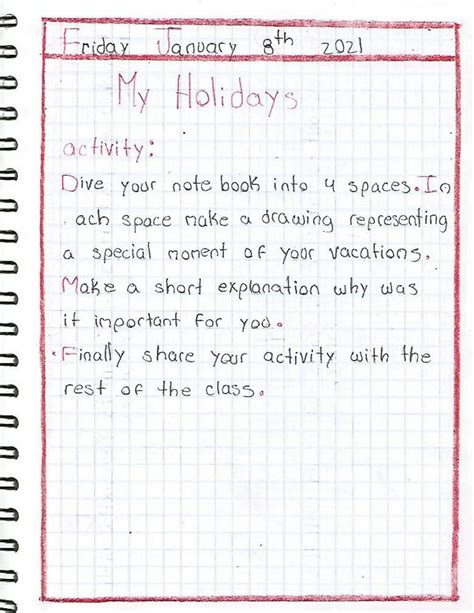 Friday January 8th 2021
My Holidays
activity:
Dive your note book into 4 spaces. In
ach space make a drawing representing
a special moment of your vacations.
Make a short explanation why was
it important for you.
• Finally share your activity with the
rest of the class.